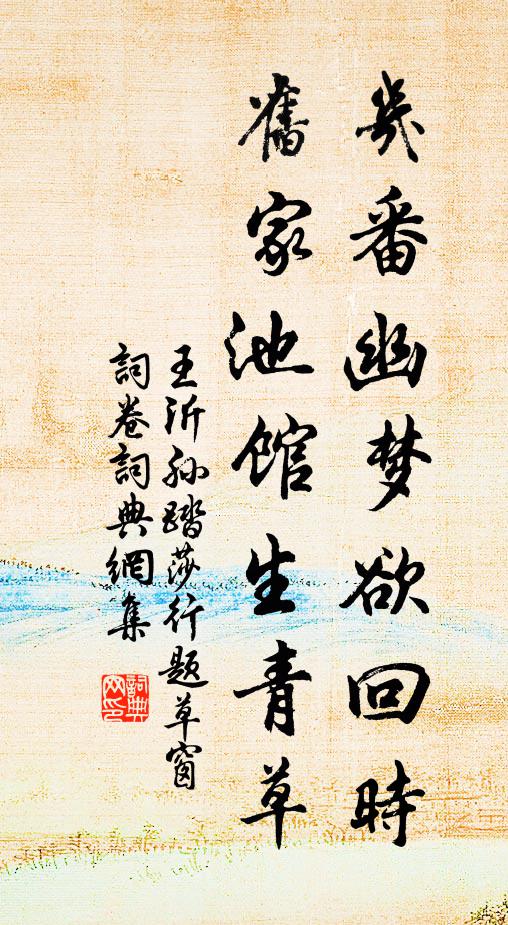 幾番幽梦欲回時
舊家池館生青草
王沂孙踏莎行題草窗
詞卷詞典網集
詞典
网印